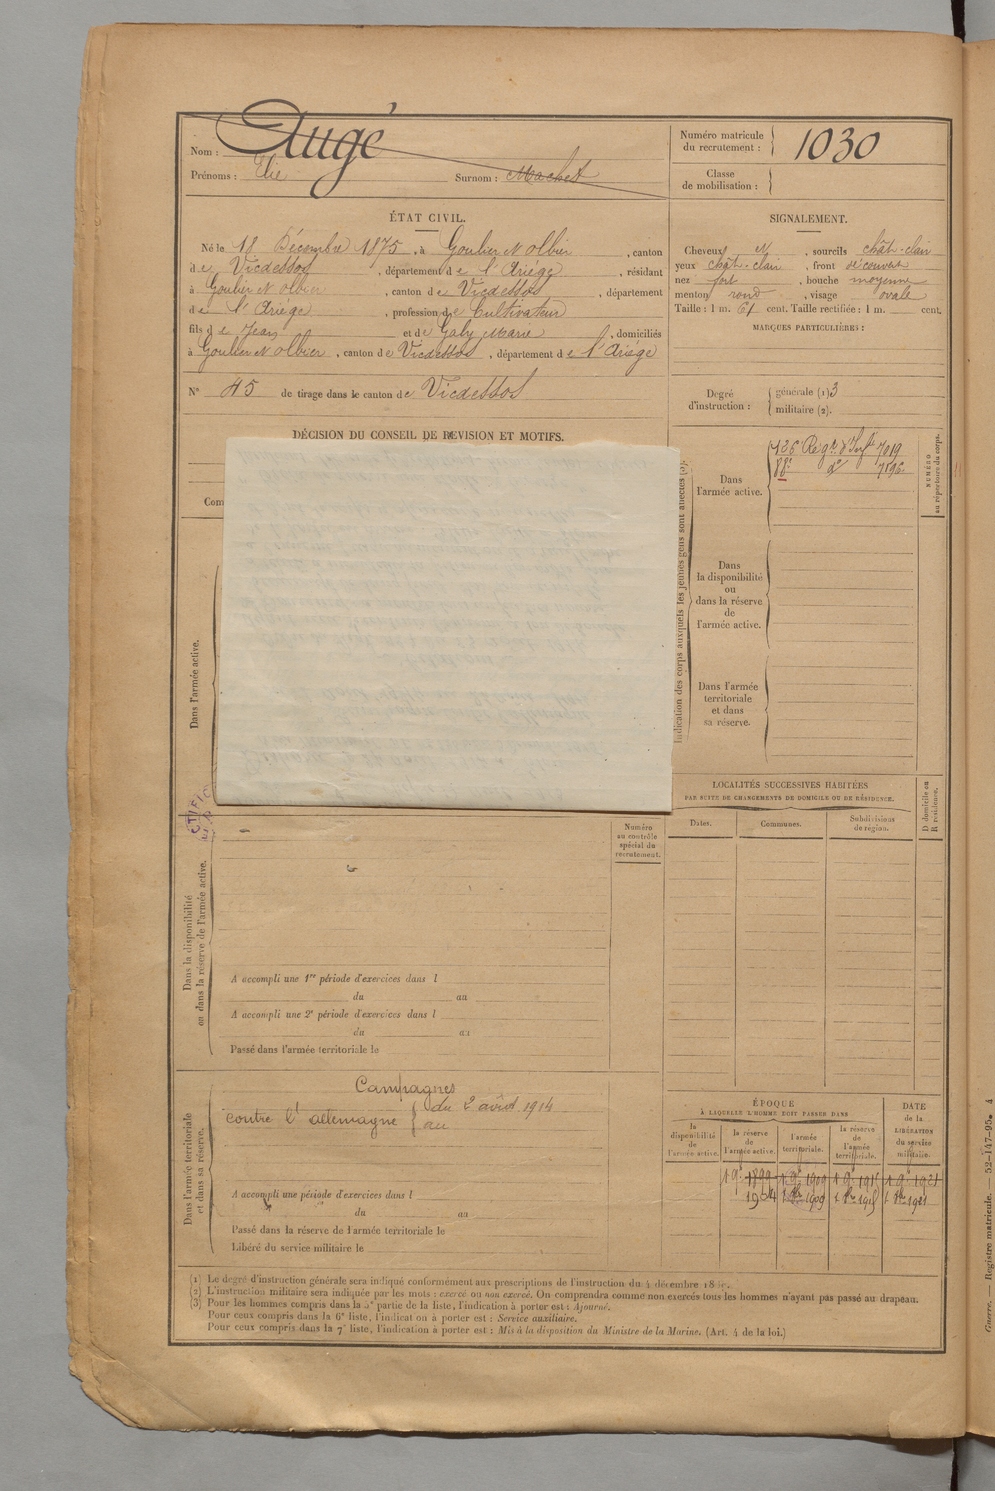 Nom : Augé
Prénoms : Elie Surnom : Machet
Numéro matricule du recrutement : 1030
Classe de mobilisation :
ÉTAT CIVIL.
Né le 18 Décembre 1875, à Goulier N Olbier, canton
de Vicdessos, département de l'Ariége, résidant
à Goulier N Olbier, canton de Vicdessos, département
de l'Ariége, profession de Cultivateur
fils de Jean et de Galy Marie, domiciliés
à Goulier N Olbier, canton de Vicdessos, département de l'Ariége
N° 45 de tirage dans le canton de Vicdessos
SIGNALEMENT.
Cheveux N, sourcils chât-clair
yeux chât-clair, front découvert
nez fort, bouche moyenne
menton rond, visage ovale
Taille : 1 m. 61 cent. Taille rectifiée : 1 m. cent.
MARQUES PARTICULIÈRES :
Degré d'instruction : générale (1) 3
militaire (2).
DÉCISION DU CONSEIL DE REVISION ET MOTIFS.
Com
Indication des corps auxquels les jeunes gens sont affectés (3).
Dans l'armée active.
126e Régt d'Infie 7019
88e do 7896
NUMÉRO au répertoire du corps.
Dans
la disponibilité
ou
dans la réserve
de
l'armée active.
Dans l'armée
territoriale
et dans
sa réserve.
Dans l'armée active.
LOCALITÉS SUCCESSIVES HABITÉES
PAR SUITE DE CHANGEMENTS DE DOMICILE OU DE RÉSIDENCE.
Dates. Communes. Subdivisions de région. D domicile ou R résidence.
Numéro
au contrôle
spécial du
recrutement.
Dans la disponibilité
ou dans la réserve de l'armée active.
A accompli une 1re période d'exercices dans l
du au
A accompli une 2e période d'exercices dans l
du au
Passé dans l'armée territoriale le
Dans l'armée territoriale
et dans sa réserve.
Campagnes
contre l'allemagne { du 2 août 1914
au
A accompli une période d'exercices dans l
du au
Passé dans la réserve de l'armée territoriale le
Libéré du service militaire le
ÉPOQUE
À LAQUELLE L'HOMME DOIT PASSER DANS
DATE de la LIBÉRATION du service militaire.
la disponibilité de l'armée active. la réserve de l'armée active. l'armée territoriale. la réserve de l'armée territoriale.
1909 1921
1909 1921
(1) Le degré d'instruction générale sera indiqué conformément aux prescriptions de l'instruction du 4 décembre
(2) L'instruction militaire sera indiquée par les mots : exercé ou non exercé. On comprendra comme non exercés tous les hommes n'ayant pas passé au drapeau.
(3) Pour les hommes compris dans la 5e partie de la liste, l'indication à porter est : Ajourné.
Pour ceux compris dans la 6e liste, l'indication à porter est : Service auxiliaire.
Pour ceux compris dans la 7e liste, l'indication à porter est : Mis à la disposition du Ministre de la Marine. (Art. 4 de la loi.)
Guerre. — Registre matricule. — 52-147-95. 4